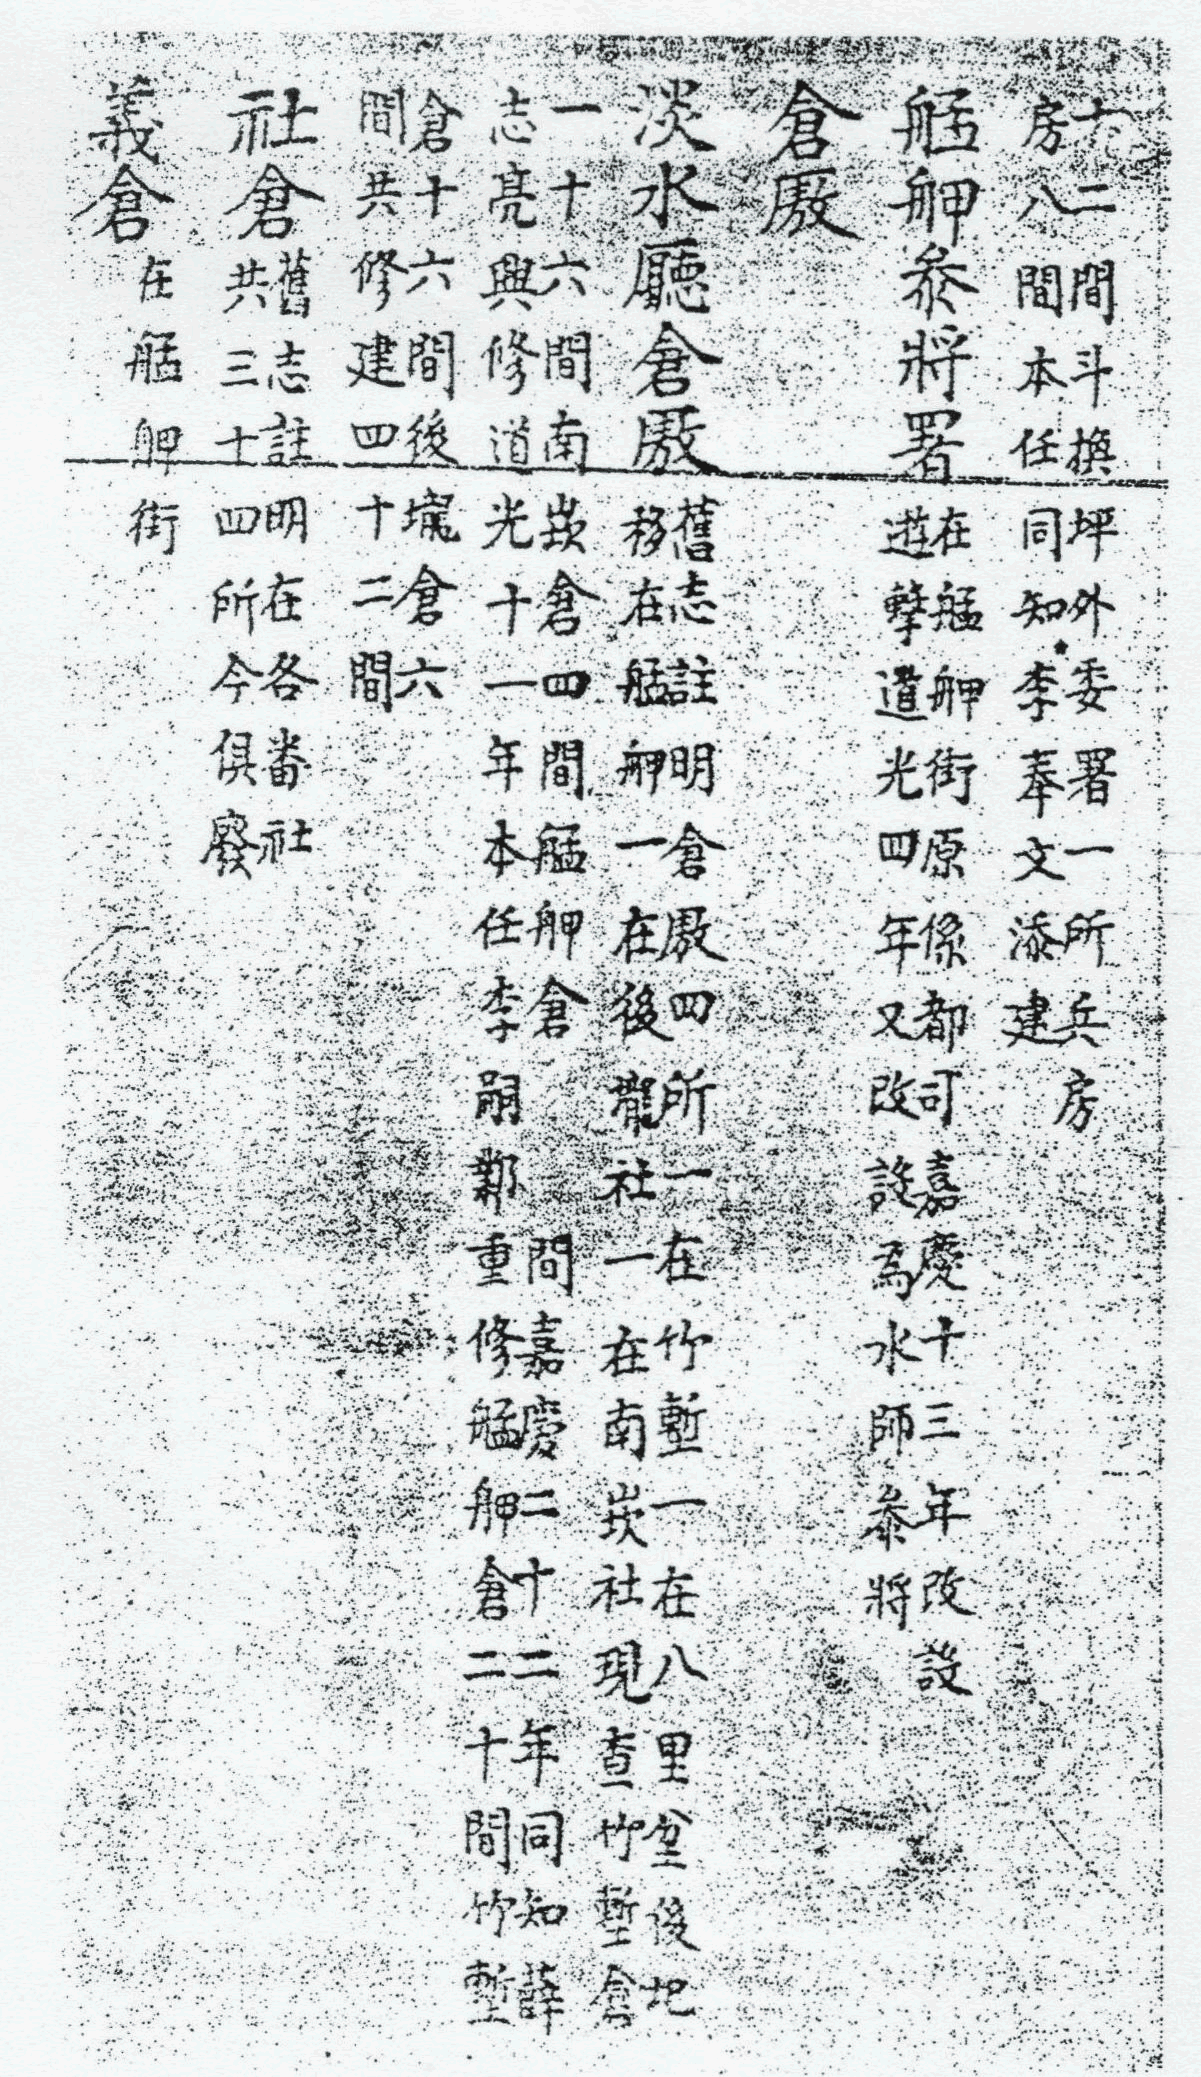 十二間斗換坪外委署一所兵房
房八間本任同知李奉文添建
艋舺叅將署
在艋舺街原係都司嘉慶十三年改設
遊擊道光四年又改設為水師叅將
倉廒
淡水廳倉廒
舊志註明倉廒四所一在竹塹一在八里坌後圯
移在艋舺一在後壠社一在南崁社現查竹塹倉
一十六間南崁倉四間艋舺倉 間嘉慶二十二年同知薛
志亮興修道光十一年本任李嗣鄴重修艋舺倉二十間竹塹
倉十六間後壠倉六
間共修建四十二間
社倉
舊志註明在各番社
共三十四所今俱廢
義倉
在艋舺街